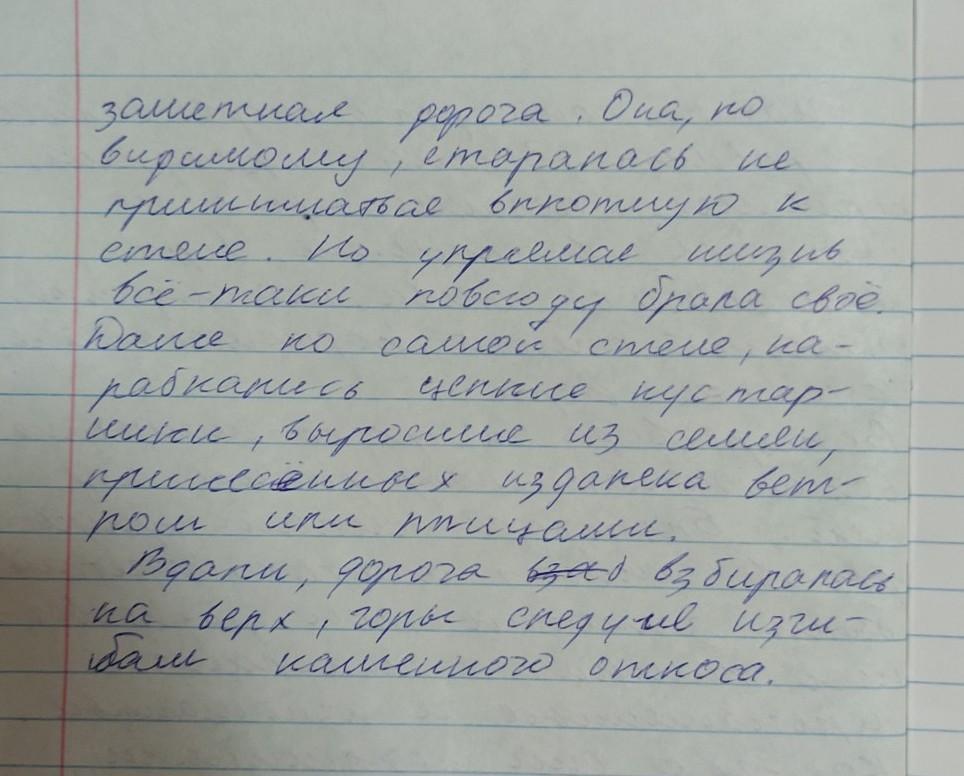 заметная дорога. Она, по
видимому, старалась не
приниматься вплотную к
стене. Но упрямая жизнь
всё-таки повсюду брала своё.
Даже по самой стене, ка-
рабкались цепкие кустар-
ники, выросшие из семян,
принесённых издалека вет-
ром или птицами.
Вдали, дорога взбиралась
на верх, горы следуя изги-
бам каменного откоса.